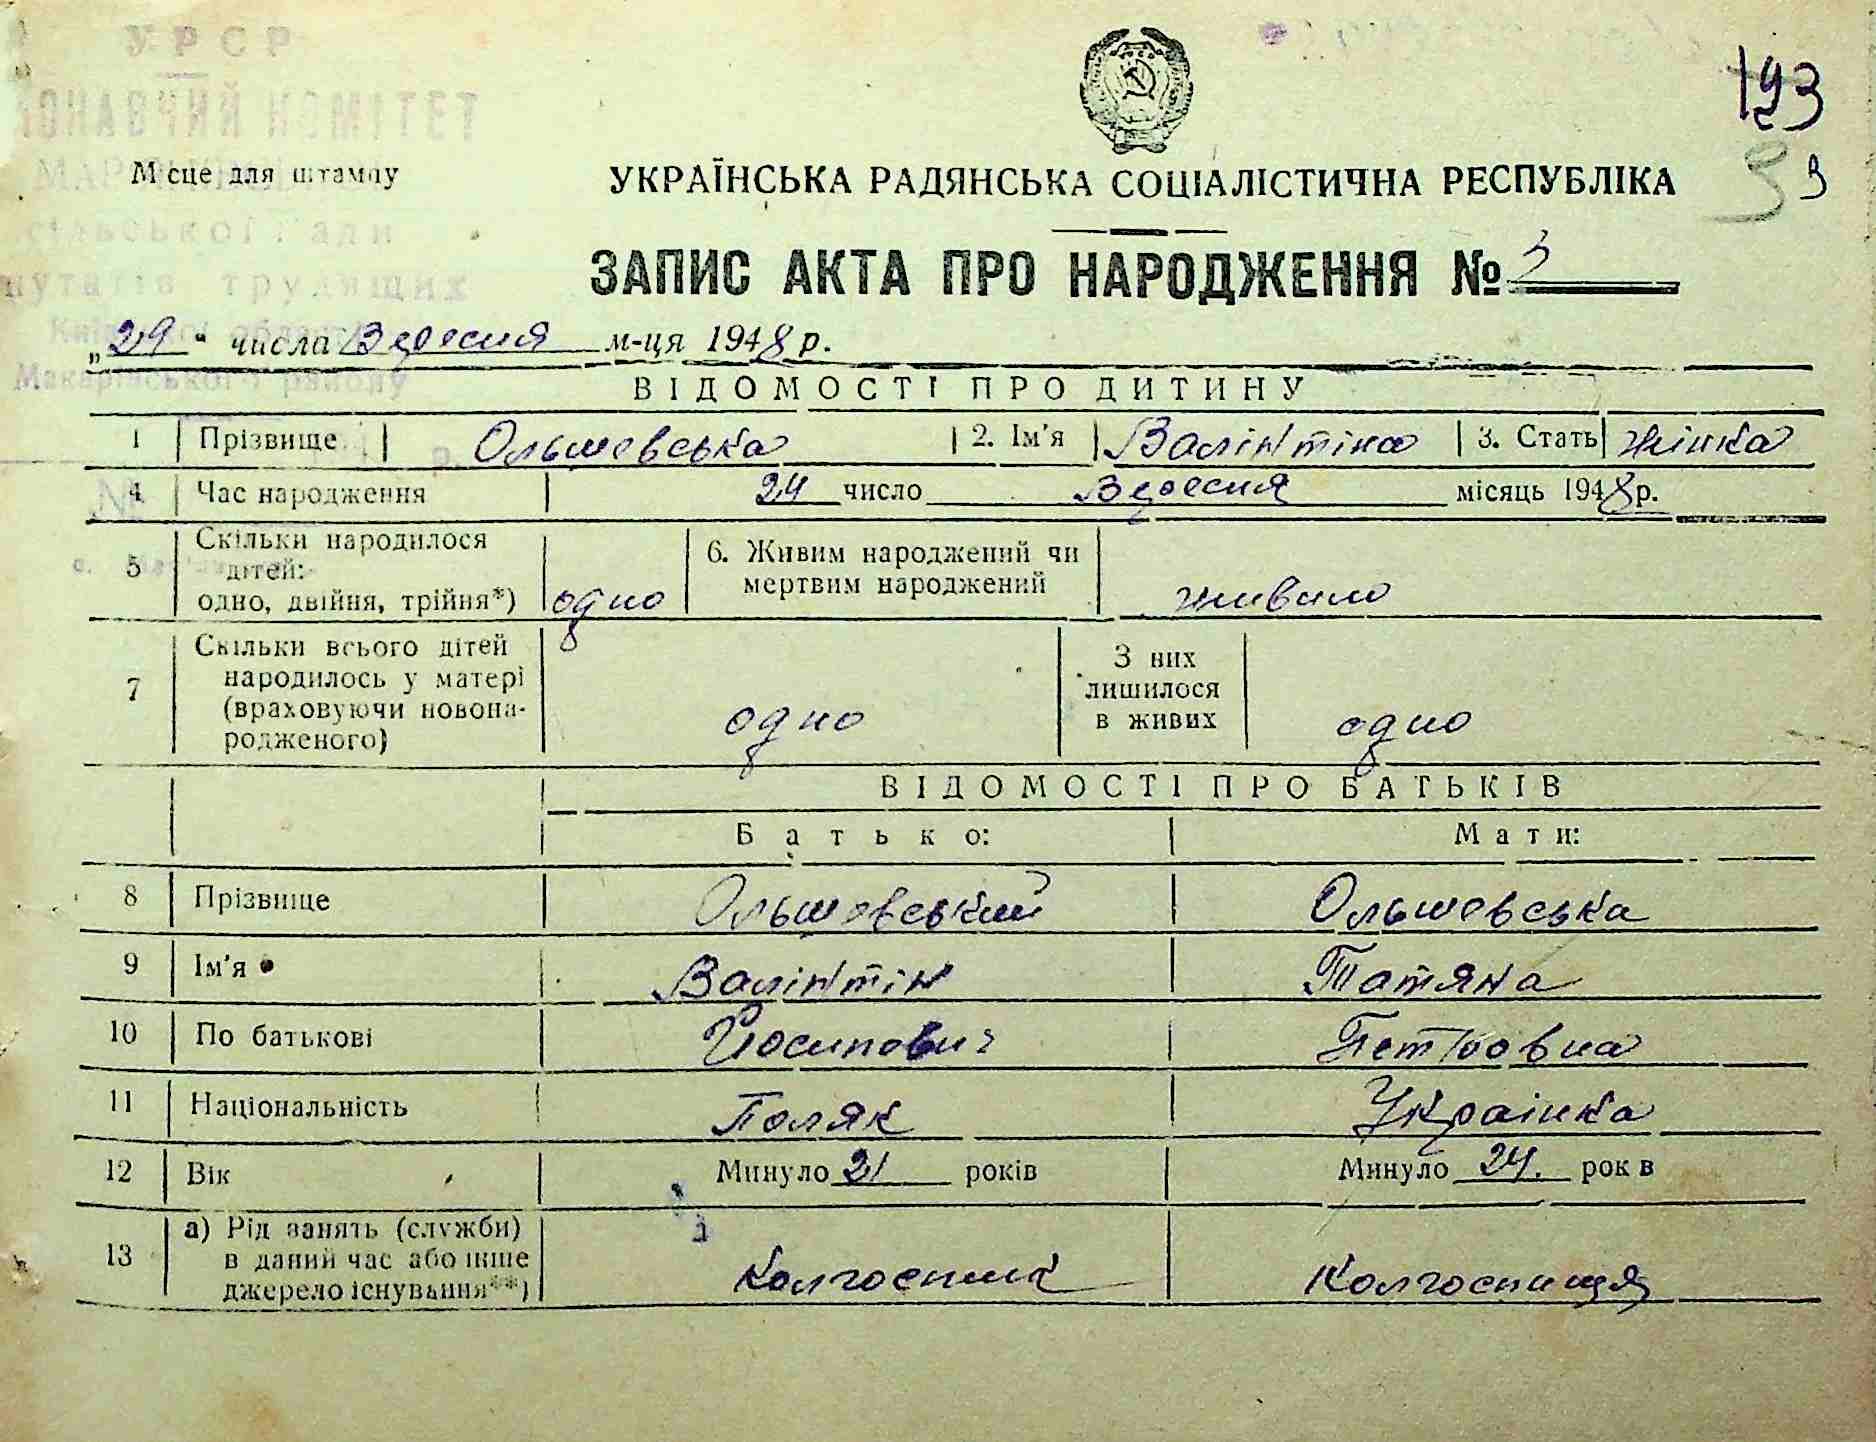 УРСР
КОМІТЕТ
193
Місце для штампу
УКРАЇНСЬКА РАДЯНСЬКА СОЦІАЛІСТИЧНА РЕСПУБЛІКА
сільської Ради
трудящих
ЗАПИС АКТА ПРО НАРОДЖЕННЯ № 3
Київської області
Макарівського району
„29" числа Вересня м-ця 1948 р.
ВІДОМОСТІ ПРО ДИТИНУ
1 Прізвище Ольшевська 2. Ім'я Валінтіна 3. Стать жінка
4 Час народження 24 число Вересня місяць 1948 р.
5 Скільки народилося дітей: одно, двійня, трійня*) одно 6. Живим народжений чи мертвим народжений живим
7 Скільки всього дітей народилось у матері (враховуючи новонародженого) одно З них лишилося в живих одно
ВІДОМОСТІ ПРО БАТЬКІВ
Батько: Мати:
8 Прізвище Ольшевський Ольшевська
9 Ім'я Валінтін Татяна
10 По батькові Йосипович Петровна
11 Національність Поляк Українка
12 Вік Минуло 21 років Минуло 24. рок в
13 а) Рід занять (служби) в даний час або інше джерело існування**) Колгоспник Колгоспниця